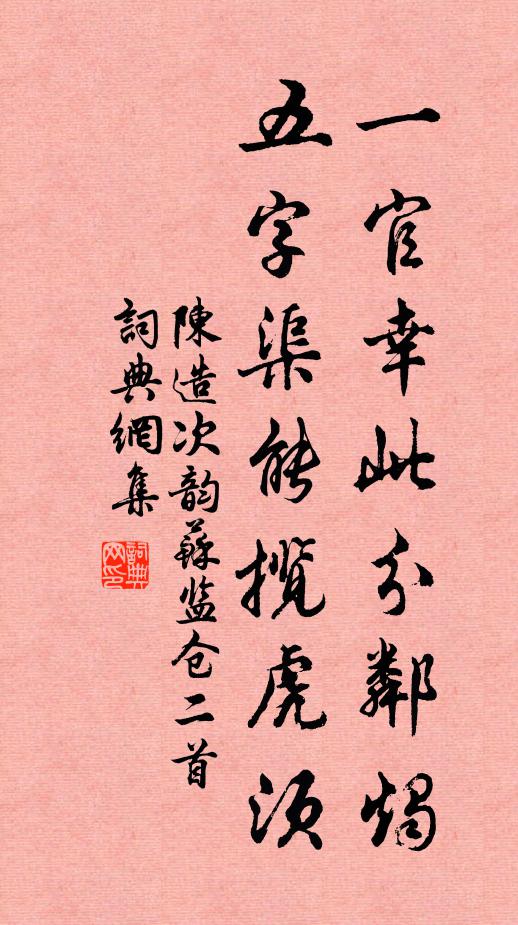 一官幸此分鄰燭
五字渠能攬虎須
陳造次韵蘇监仓二首
詞典網集
詞典網印